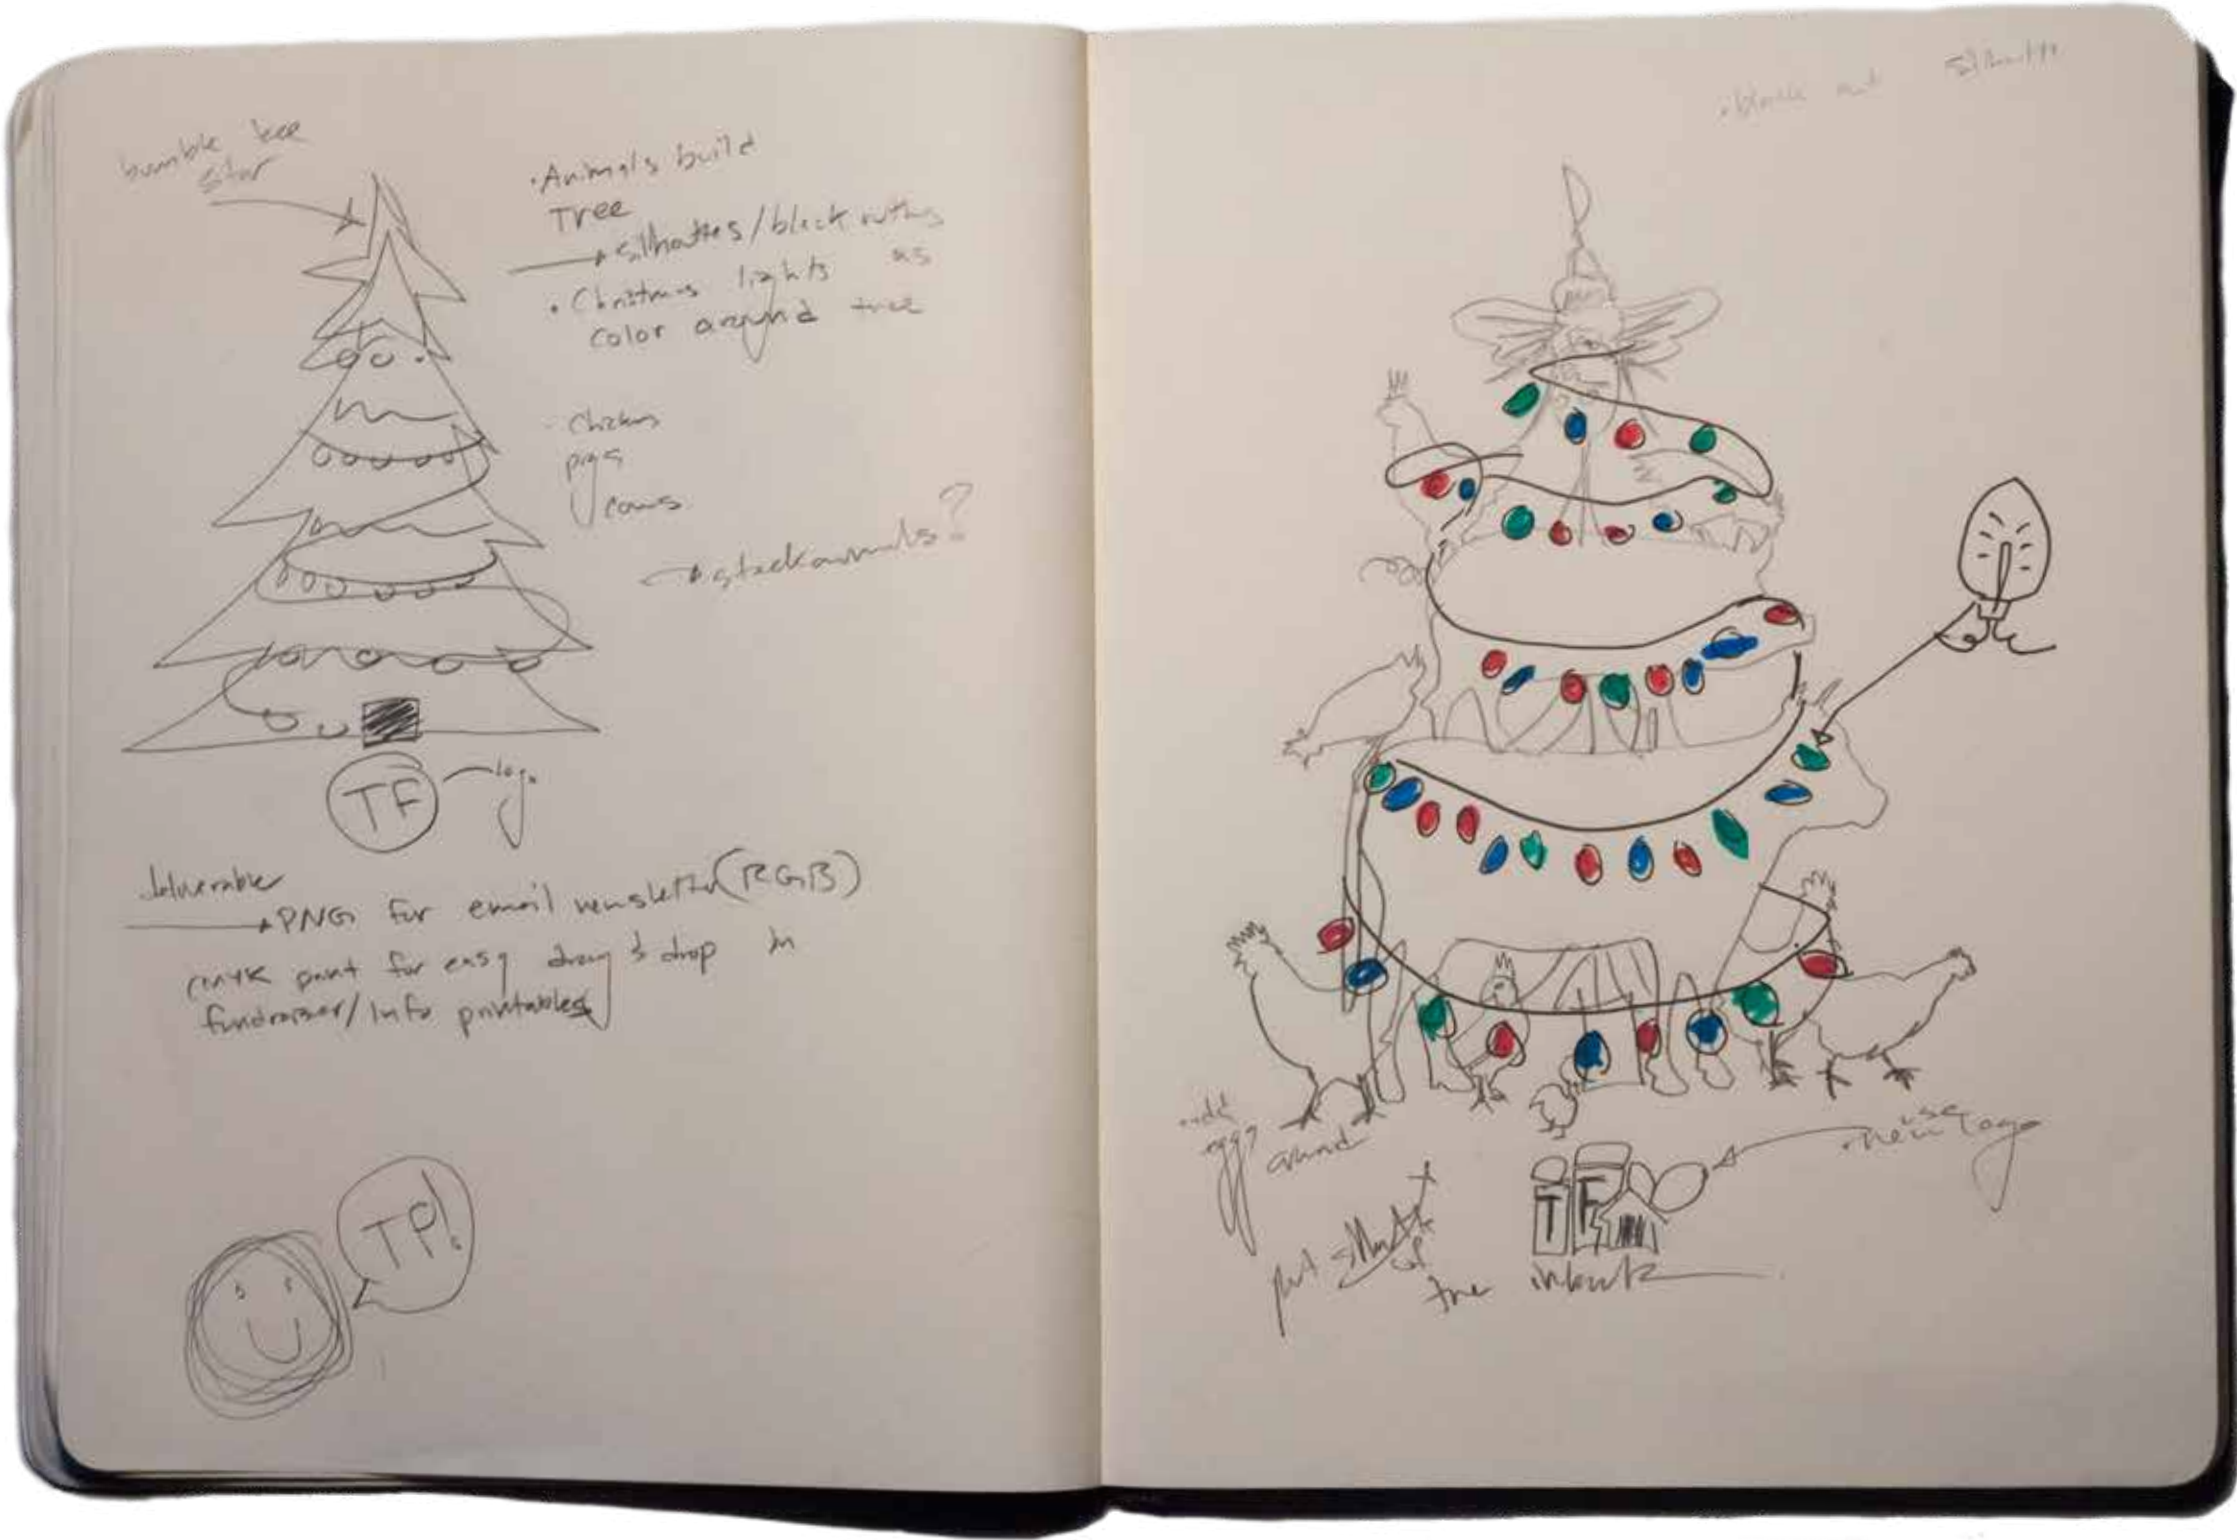 bumble bee
star
• Animals build
Tree
silhouttes / black
• Christmas lights as
color around tree
chickens
pigs
cows
stack animals?
TF
logo
deliverable
PNG for email newsletter (RGB)
CMYK print for easy drag & drop in
fundraiser / info printables
TP!
• black out
add
eggs around
use
new logo
TF
put
of
tree in back